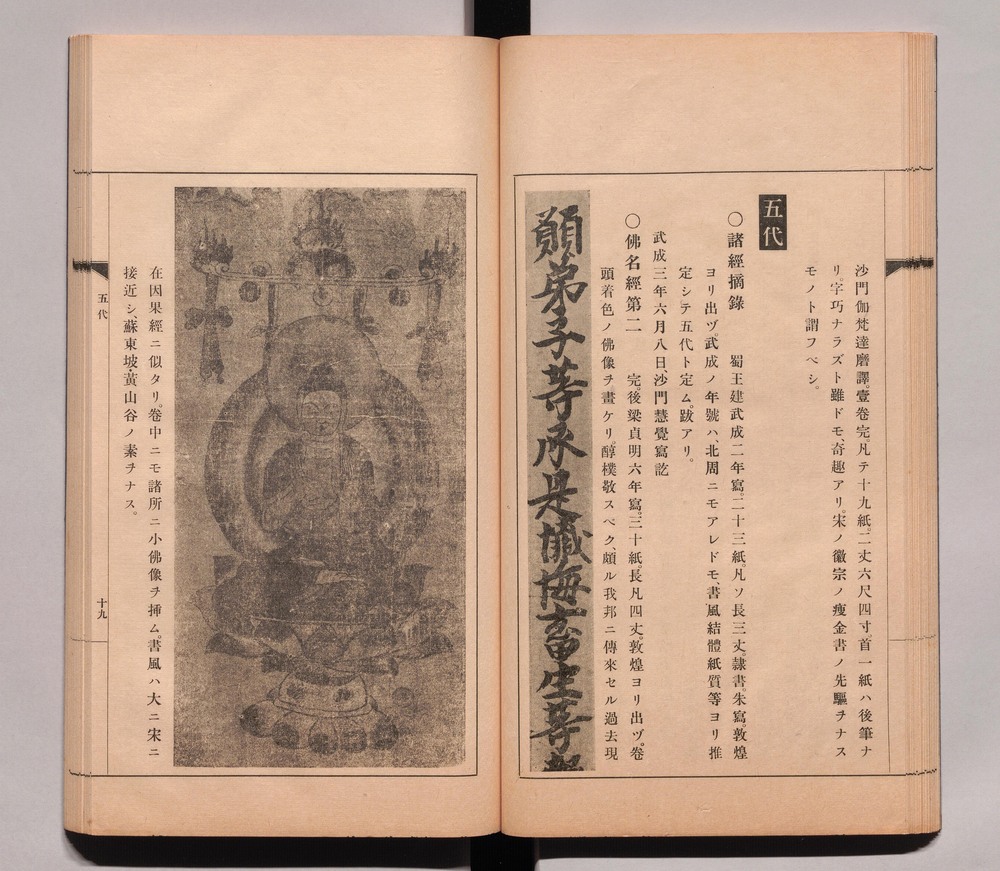 沙門伽梵達磨譯。壹卷完。凡テ十九紙。二丈六尺四寸。首一紙ハ後筆ナ
リ。字巧ナラズト雖ドモ、奇趣アリ。宋ノ徽宗ノ瘦金書ノ先驅ヲナス
モノト謂フベシ。
五代
○諸經摘錄 蜀王建武成二年寫。二十三紙。凡ソ長三丈。隷書。朱寫。敦煌
ヨリ出ヅ。武成ノ年號ハ、北周ニモアレドモ、書風結體紙質等ヨリ推
定シテ五代ト定ム。跋アリ。
武成三年六月八日沙門慧覺寫訖
○佛名經第二 完。後梁貞明六年寫。三十紙。長凡四丈。敦煌ヨリ出ヅ。卷
頭着色ノ佛像ヲ畫ケリ。醇樸敬スベク、頗ル我邦ニ傳來セル過去現
願弟子等承是懺悔畜生等
在因果經ニ似タリ。卷中ニモ諸所ニ小佛像ヲ挿ム。書風ハ大ニ宋ニ
接近シ、蘇東坡・黃山谷ノ素ヲナス。
五代
十九